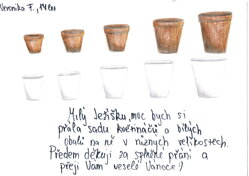 Veronika F., 14 let
Milý Ježíšku, moc bych si
přála sadu květináčů a bílých
obalů na ně v různých velikostech.
Předem děkuji za splnění přání a
přeji Vám veselé Vánoce!